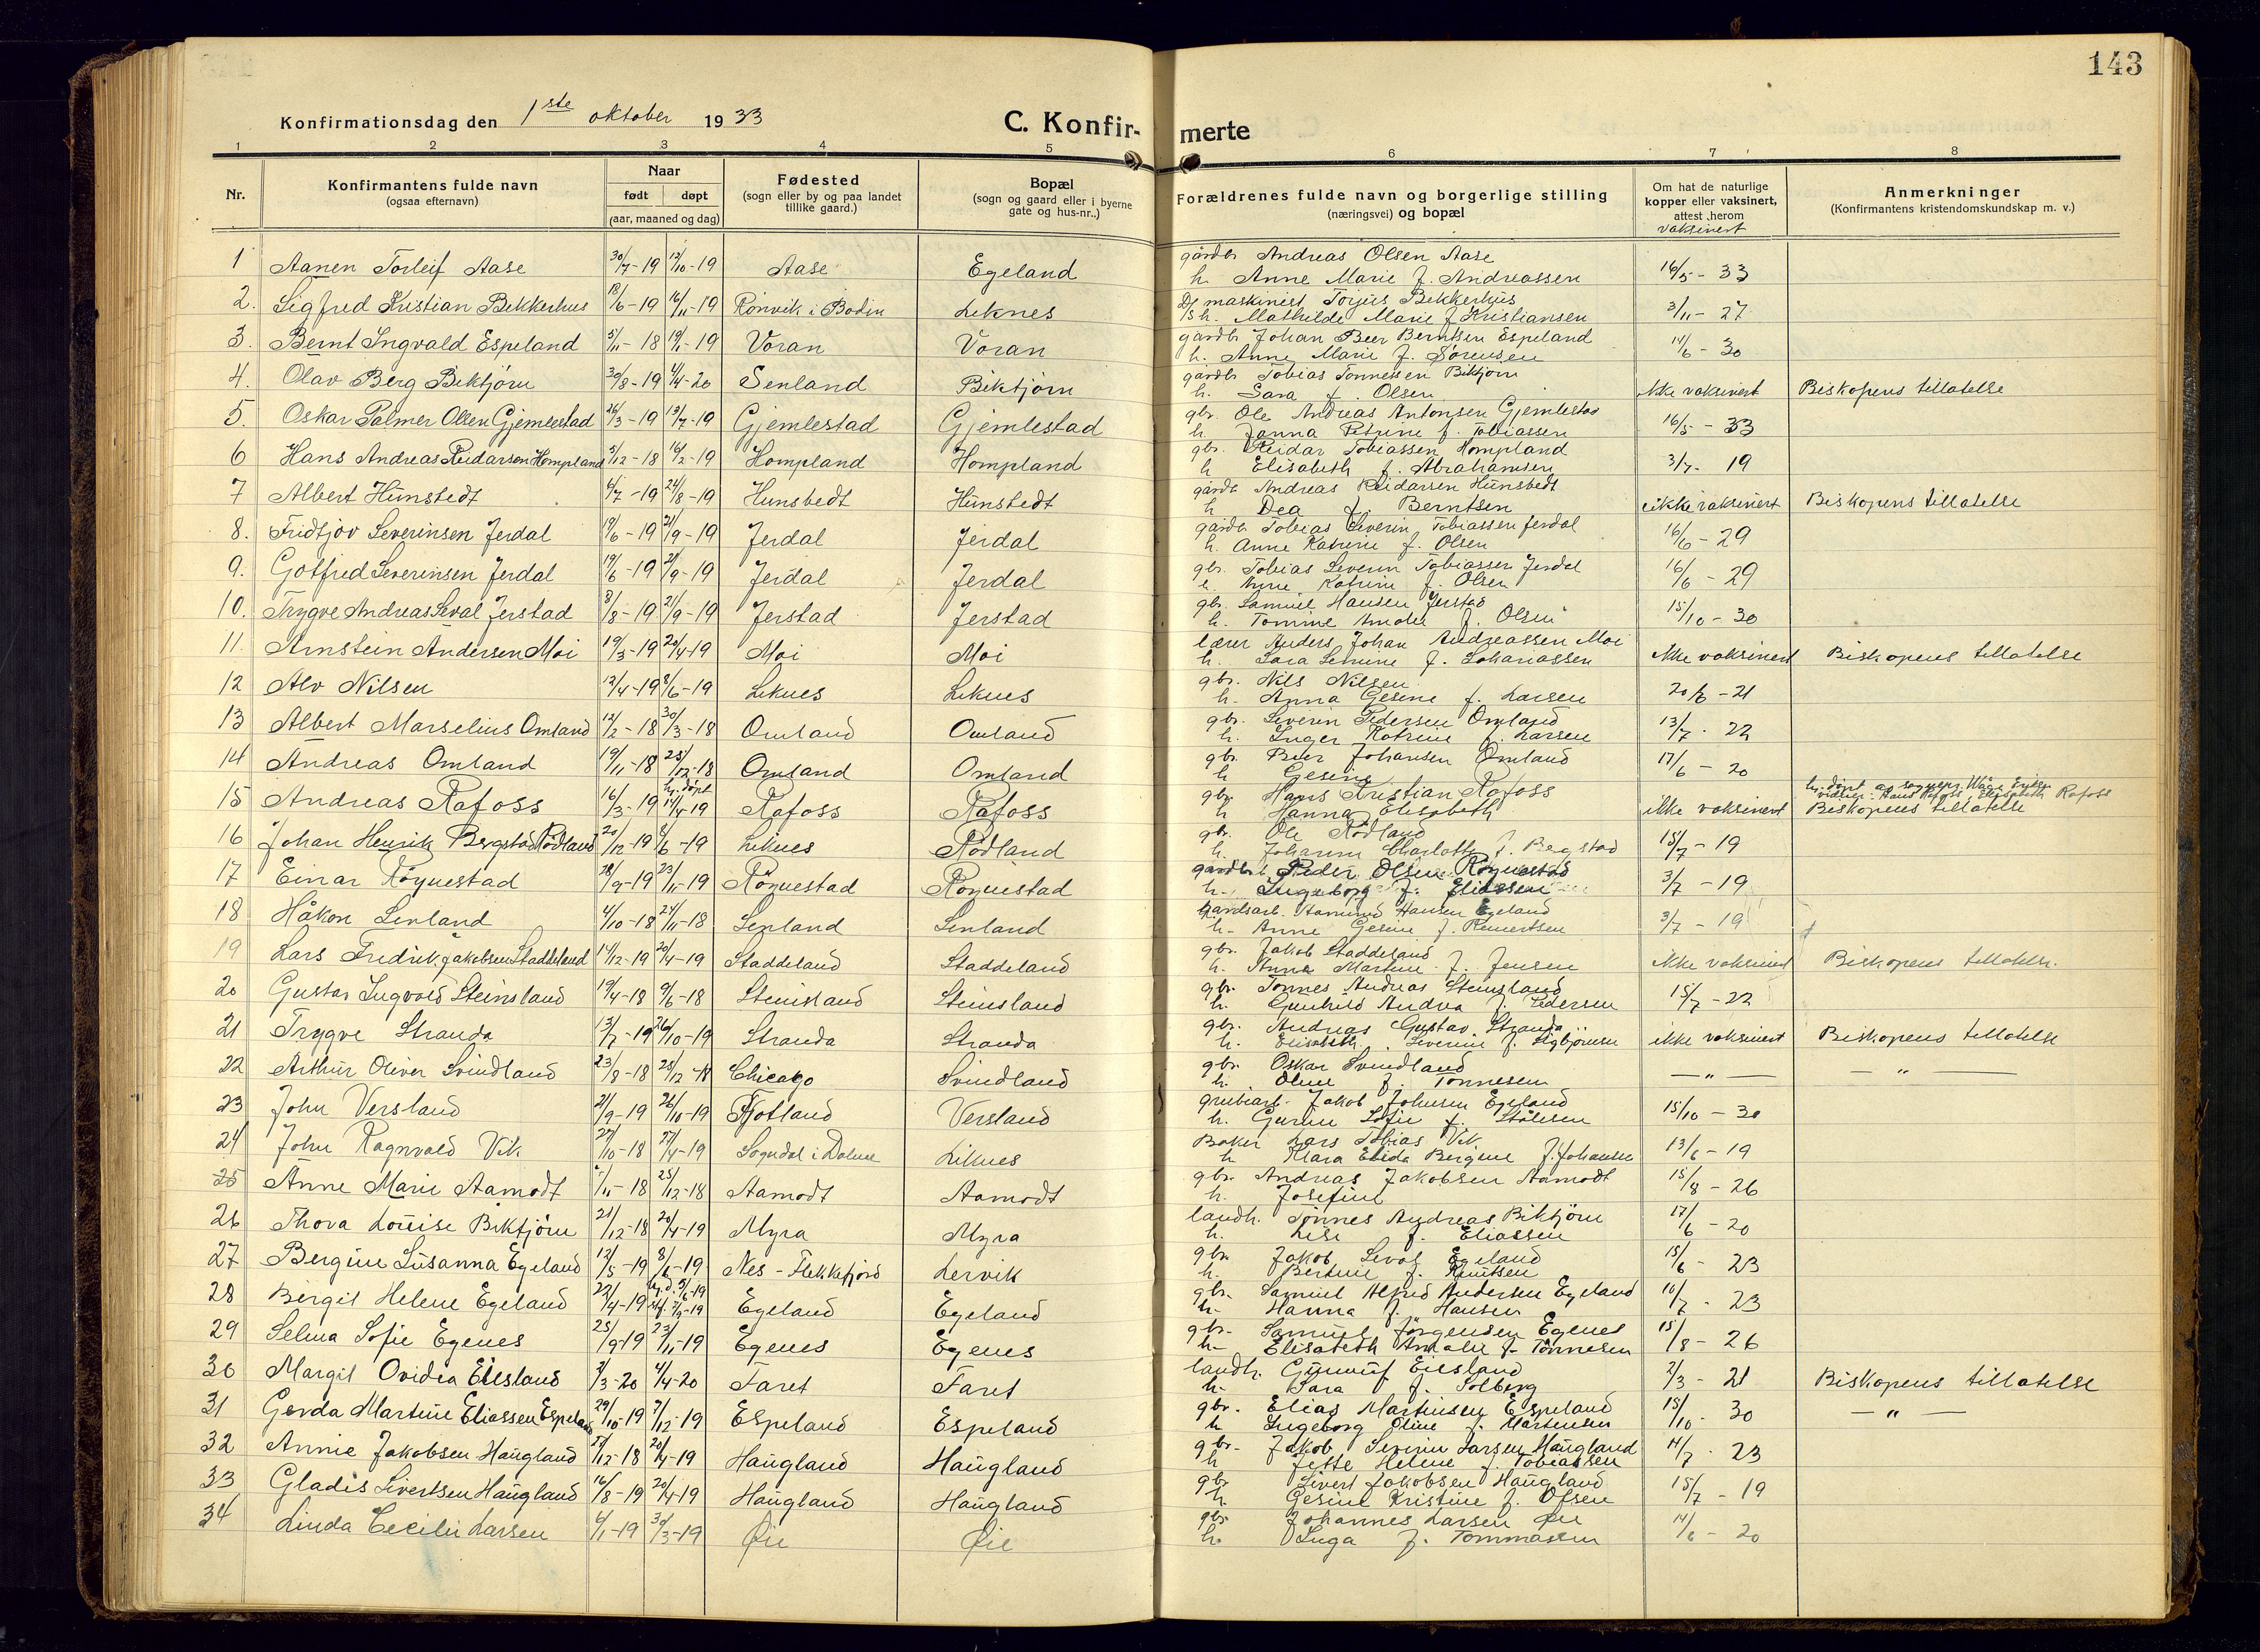 143
Konfirmationsdag den 1ste oktober 1933
C. Konfir- merte
1 2 3 4 5 6 7 8
Nr. Konfirmantens fulde navn (ogsaa efternavn) Naar født døpt (aar, maaned og dag) Fødested (sogn eller by og paa landet tillike gaard.) Bopæl (sogn og gaard eller i byerne gate og hus-nr.,) Forældrenes fulde navn og borgerlige stilling (næringsvei) og bopæl Om hat de naturlige kopper eller vaksinert, attest herom vaksinert Anmerkninger (Konfirmantens kristendomskundskap m. v.)
1 Aanen Torleif Aase 30/7-19 12/10-19 Aase Egeland gårdbr Andreas Olsen Aase
h. Anne Marie f. Andreassen 16/5-33
2. Sigfred Kristian Bekkerhus 18/6-19 16/11-19 Rønvik i Bodin Liknes maskinist Torjus Bekkerhus
h. Mathilde Marie f. Kristiansen 3/11-27
3. Bernt Ingvald Espeland 5/11-18 19/1-19 Voran Voran gårdbr Johan Beer Berntsen Espeland
h. Anne Marie f. Sørensen 14/6-30
4. Olav Berg Biktjørn 30/8-19 4/4-20 Senland Biktjørn gårdbr Tobias Tønnessen Biktjørn
h. Sara f. Olsen ikke vaksinert Biskopens tillatelse
5. Oskar Palmer Olsen Gjemlestad 26/3-19 13/7-19 Gjemlestad Gjemlestad gbr. Ole Andreas Antonsen Gjemlestad
h. Janna Petrine f. Tobiassen 16/5-33
6 Hans Andreas Reidarsen Hompland 5/12-18 16/2-19 Hompland Hompland gbr. Reidar Tobiassen Hompland
h. Elisabeth f. Abrahamsen 3/7-19
7 Albert Hunstedt 6/7-19 24/8-19 Hunsbedt Hunstedt gårdb Andreas Reidarsen Hunsbedt
h Dea f. Berntsen ikke vaksinert Biskopens tillatelse
8. Fridtjov Severinsen Jerdal 19/6-19 21/9-19 Jerdal Jerdal gårdb Tobias Severin Tobiassen Jerdal
h. Anne Katrine f. Olsen 16/6-29
9. Gotfred Severinsen Jerdal 19/6-19 21/9-19 Jerdal Jerdal gbr. Tobias Severin Tobiassen Jerdal
h. Anne Katrine f. Olsen 16/6-29
10. Trygve Andreas Seval Jerstad 8/8-19 21/9-19 Jerstad Jerstad gbr. Samuel Hansen Jerstad
h. Tomine Amalie f. Olsen 15/10-30
11. Arnstein Andersen Moi 19/3-19 20/4-19 Moi Moi lærer Anders Johan Andreassen Moi
h. Sara f. ikke vaksinert Biskopens tillatelse
12 Alv Nilsen 12/4-19 8/6-19 Liknes Liknes gbr. Nils Nilsen
h. Anna Gesine f. Larsen 20/6-21
13 Albert Marselius Omland 12/2-18 30/3-18 Omland Omland gbr. Severin Pedersen Omland
h. Inger Katrine f. Larsen 13/7-22
14 Andreas Omland 19/11-18 25/12-18 Omland Omland gbr. Peer Johansen Omland
h Gesine 17/6-20
15 Andreas Rafoss 16/3-19 hj. døpt 14/4-19 Rafoss Rafoss gbr. Hans Kristian Rafoss
h Hanna Elisabeth ikke vaksinert hj. døpt av
Biskopens tillatelse
16 Johan Henrik Bergstad Rødland 20/12-19 8/6-19 Liknes Rødland gbr. Ole Rødland
h. Johanne Charlotte f. Bergstad 15/7-19
17 Einar Røynestad 28/9-19 23/11-19 Røynestad Røynestad gårdbr. Peder Olsen Røynestad
h. Ingeborg f. Eliassen 3/7-19
18 Håkon Senland 4/10-18 24/11-18 Senland Senland Aanund Hansen Egeland
h. Anne Gesine f. Reinertsen 3/7-19
19 Lars Fredrik Jakobsen Staddeland 14/12-19 20/4-19 Staddeland Staddeland gbr. Jakob Staddeland
h. Anna Martine f. Jensen ikke vaksinert Biskopens tillatelse.
20 Gustav Ingvald Steinsland 19/4-18 9/6-18 Steinsland Steinsland gbr. Tønnes Andreas Steinsland
h. Gunhild Andrea f. Pedersen 15/7-22
21 Trygve Stranda 13/7-19 26/10-19 Stranda Stranda gbr. Andreas Gustav Stranda
h. Elisabeth Severine f. Sigbjørnsen ikke vaksinert Biskopens tillatelse
22 Arthur Oliver Svindland 23/8-18 25/12-18 Chicago Svindland gbr. Oskar Svindland
h. Oline f. Tønnesen — " — — " —
23 John Versland 21/9-19 26/10-19 Fjotland Versland grubearb. Jakob Johnsen Egeland
h. Gurine Sofie f. Stålesen 15/10-30
24 John Ragnvald Vik 27/10-18 27/4-19 Sogndal i Dalene Liknes Baker Lars Tobias Vik
h Klara Elida Bergine f. Johansen 13/6-19
25 Anne Marie Aamodt /11-18 25/12-18 Aamodt Aamodt gbr. Andreas Jakobsen Aamodt
h. Josefine 15/8-26
26 Thora Louise Biktjørn 21/12-18 20/4-19 Myra Myra landh. Tønnes Andreas Biktjørn
h. Lise f. Eliassen 17/6-20
27 Bergine Susanna Egeland 12/5-19 8/6-19 Nes - Flekkefjord Lervik gbr. Jakob Seval Egeland
h. Bertine f. Knutsen 15/6-23
28 Birgit Helene Egeland 22/4-19 hj.d. 5/6-19 stf. 7/9-19 Egeland Egeland gbr. Samuel Alfred Andersen Egeland
h- Hanna f. Hansen 10/7-23
29 Selma Sofie Egenes 25/9-19 23/11-19 Egenes Egenes gbr- Samuel Jørgensen Egenes
h- Elisabeth Amalie f. Tønnesen 15/8-26
30 Margit Ovidia Eiesland 3/3-20 4/4-20 Faret Faret landh. Gunnuf Eiesland
h- Sara f. Solberg 2/3-21 Biskopens tillatelse
31 Gerda Martine Eliassen Espeland 29/10-19 7/12-19 Espeland Espeland gbr. Elias Martinsen Espeland
h Ingeborg Oline f. Martinsen 15/10-30 — " —
32 Annie Jakobsen Haugland 27/12-18 20/4-19 Haugland Haugland gbr- Jakob Severin Larsen Haugland
h Jette Helene f. Tobiassen 14/7-23
33 Gladis Sivertsen Haugland 16/8-19 20/4-19 Haugland Haugland gbr Sivert Jakobsen Haugland
h. Gesine Kristine f. Olsen 15/7-19
34 Linda Cecilie Larsen 6/1-19 30/3-19 Øie Øie gbr. Johannes Larsen Øie
h. Inga f. Tommassen 14/6-20